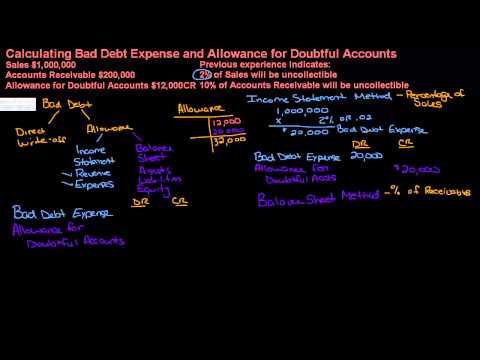 Calculating Bad Debt Expense and Allowance for Doubtful Accounts
Sales $1,000,000 Previous experience indicates:
Accounts Receivable $200,000 2% of Sales will be uncollectible
Allowance for Doubtful Accounts $12,000CR 10% of Accounts Receivable will be uncollectible
Bad Debt
Direct
Write-off
Allowance
Income
Statement
- Revenue
- Expenses
Balance
Sheet
Assets
Liabilities
Equity
Allowance
12,000
20,000
32,000
Income Statement Method - Percentage of
Sales
1,000,000
x 2% or .02
$20,000 Bad Debt Expense
DR CR
Bad Debt Expense 20,000
Allowance for $20,000
Doubtful Accts
Balance Sheet Method - % of Receivables
DR CR
Bad Debt Expense
Allowance for
Doubtful Accounts